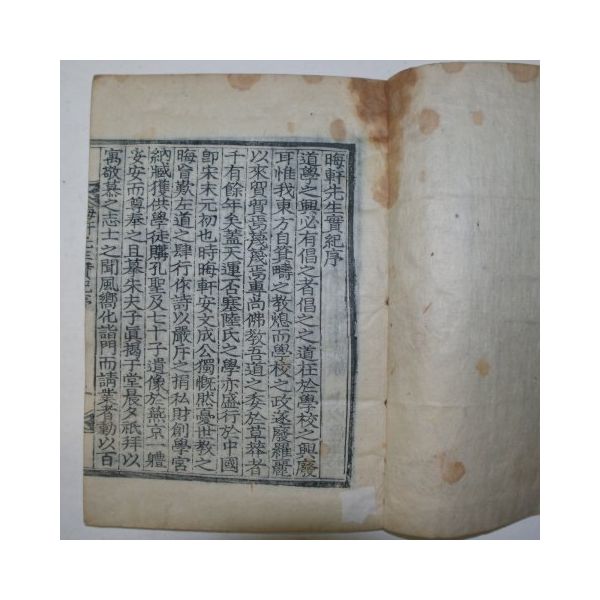 晦軒先生實紀序
道學之興必有倡之者倡之之道在於學校之興廢
耳惟我東方自箕疇之敎熄而學校之政遂廢羅麗
以來貿貿焉蔑蔑焉專尚佛敎吾道之委於草莽者
千有餘年矣蓋天運否塞陸氏之學亦盛行於中國
卽宋末元初也時晦軒安文成公獨慨然憂世敎之
晦會歎左道之肆行作詩以嚴斥之捐私財創學宮
納臧獲供學徒購孔聖及七十子遺像於燕京一軆
妥安而尊奉之且慕朱夫子眞揭于堂晨夕祇拜以
寓敬慕之志士之聞風嚮化詣門而請業者動以百
晦軒先生實紀序